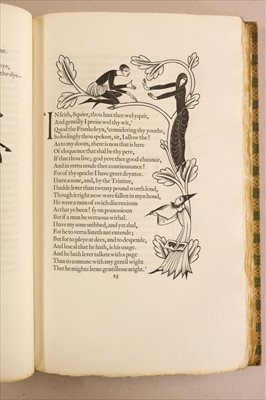 ne.
ye,
the slye...
N feith, Squier, thou hast thee wel yquit,
And gentilly I preise wel thy wit,'
Quod the Frankeleyn, 'considering thy youthe,
So feelingly thou spekest, sir, I allow the!
As to my doom, there is non that is here
Of eloquence that shal be thy pere,
If that thou live; god yeve thee good chaunce,
And in vertu sende thee continuaunce!
For of thy speche I have greet deyntee.
I have a sone, and, by the Trinitee,
I hadde lever than twenty pound worth lond,
Though it right now were fallen in myn hond,
He were a man of swich discrecioun
As that ye been! fy on possessioun
But if a man be vertuous withal.
I have my sone snibbed, and yet shal,
For he to vertu listeth nat entende;
But for to pleye at dees, and to despende,
And lese al that he hath, is his usage.
And he hath lever talken with a page
Than to comune with any gentil wight
Ther he mighte lerne gentillesse aright.'
25